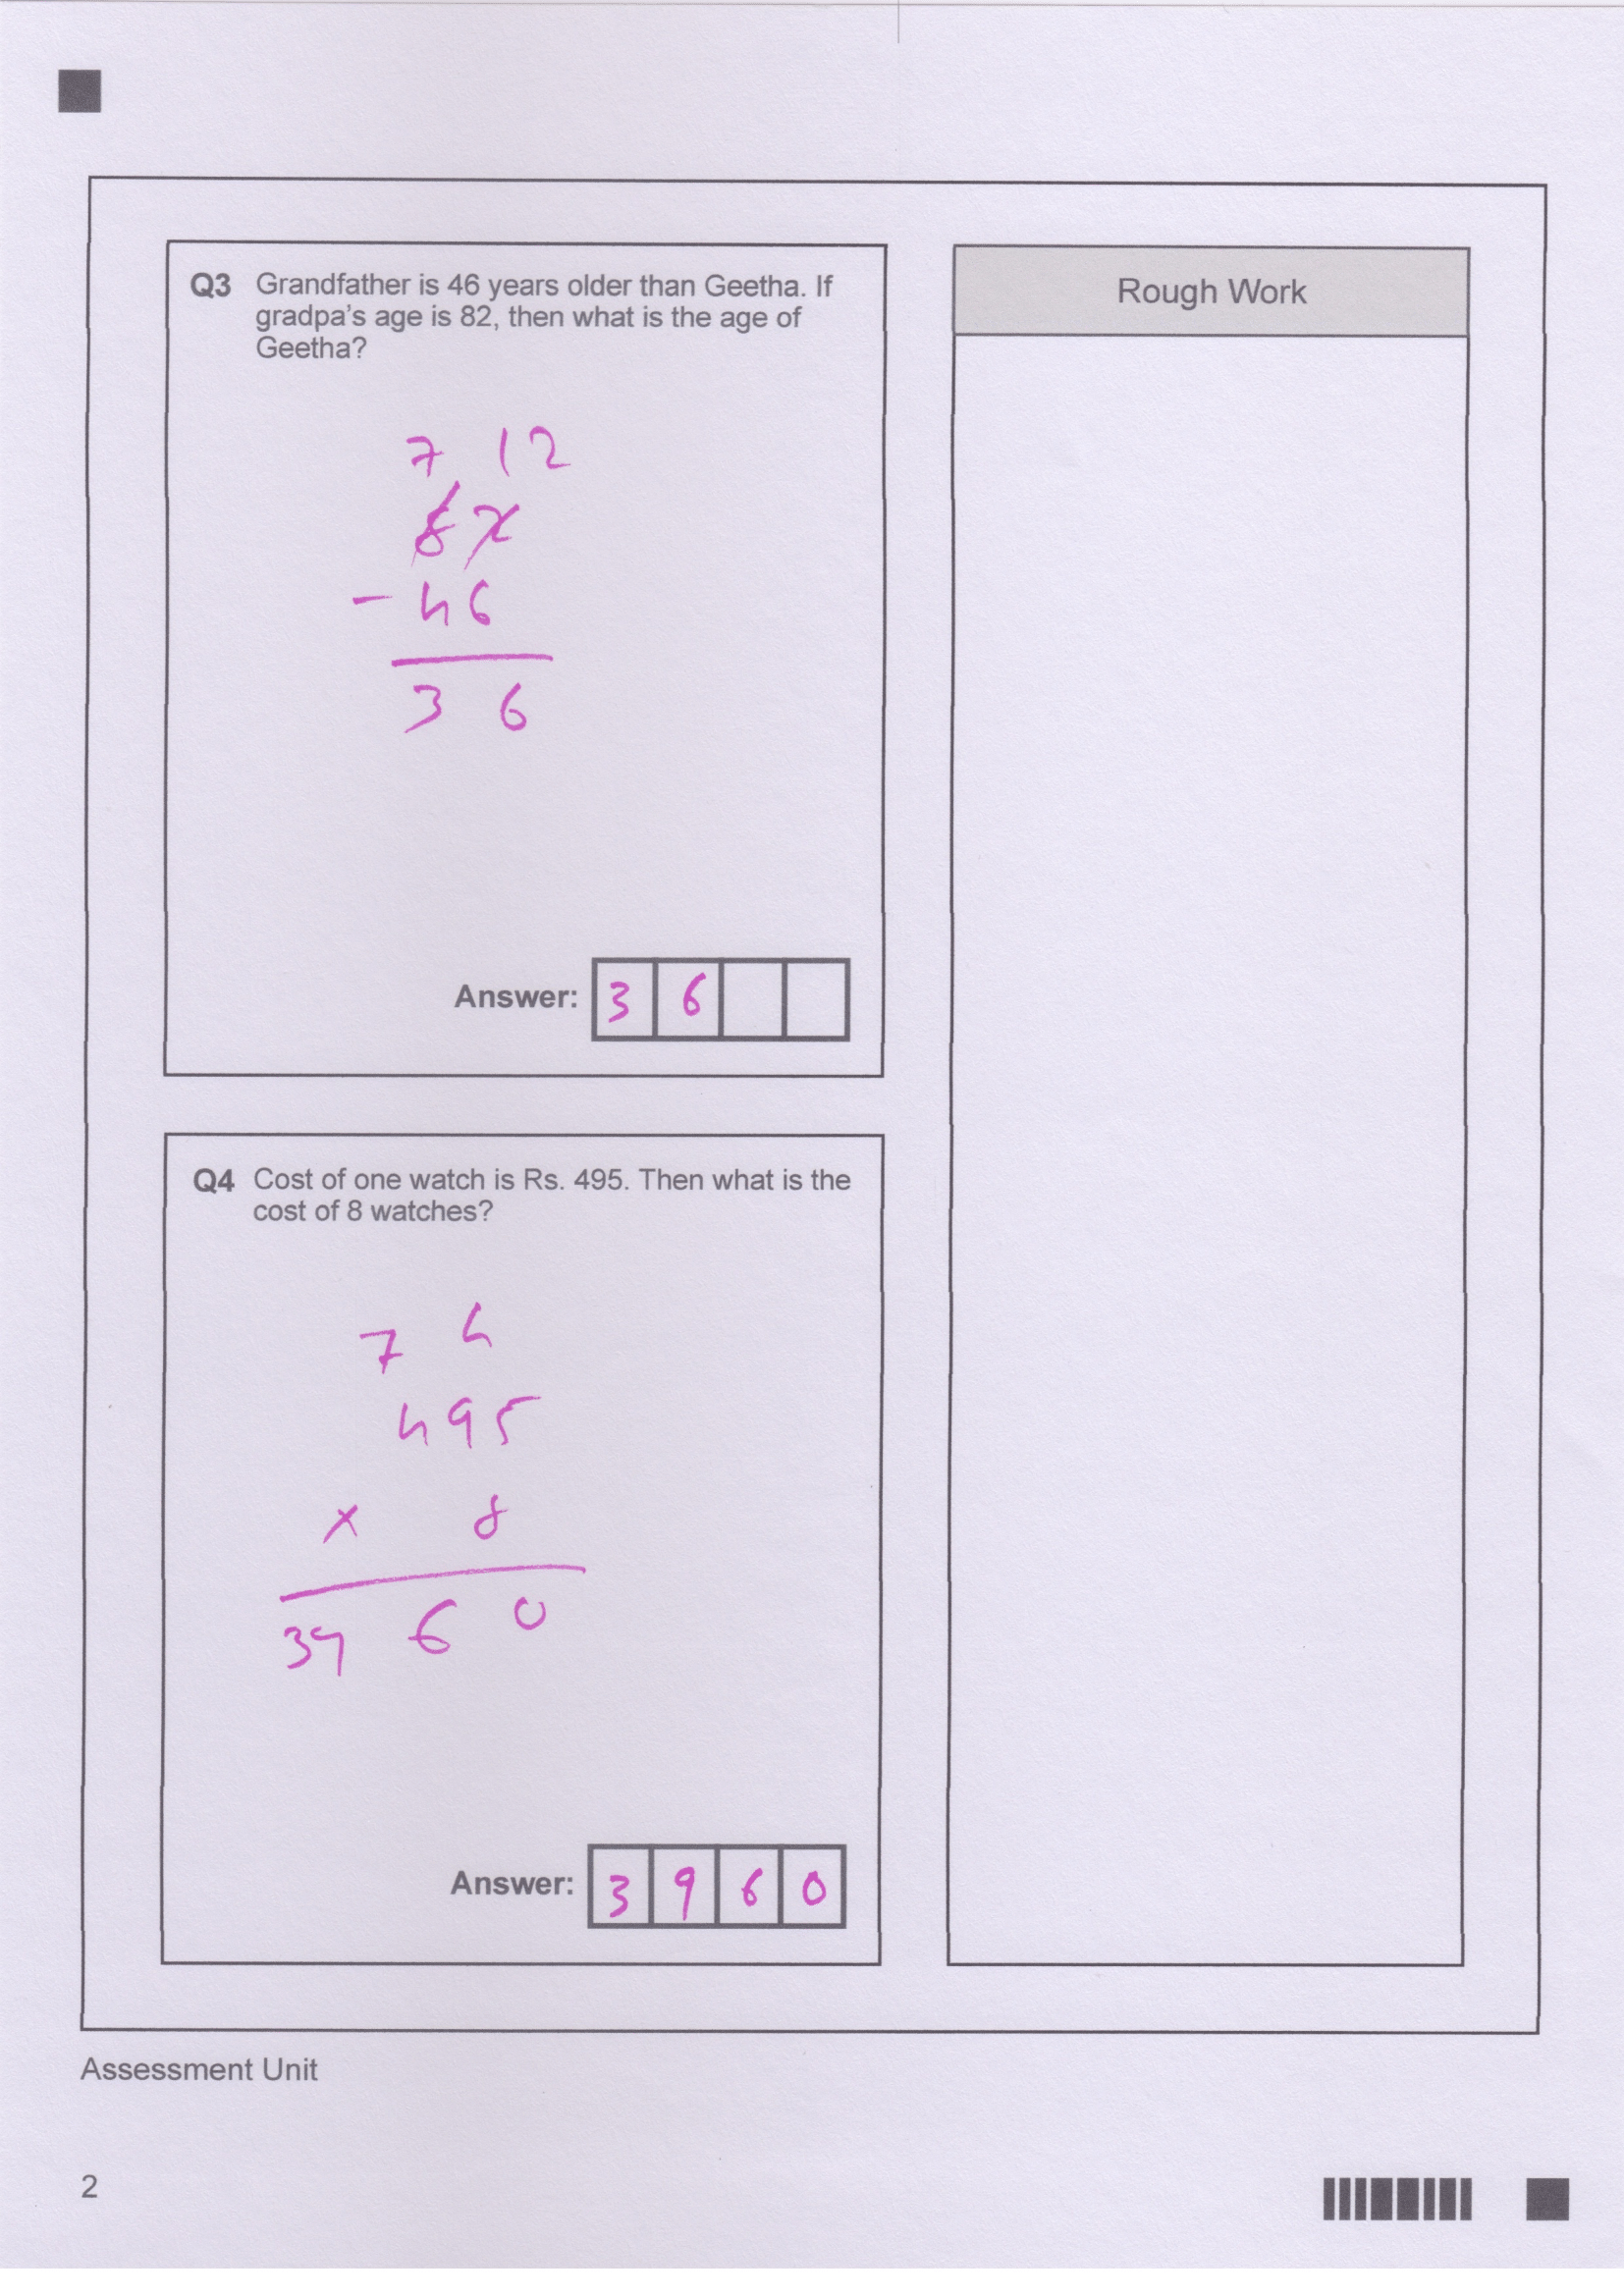 Q3 Grandfather is 46 years older than Geetha. If
gradpa's age is 82, then what is the age of
Geetha?
7 12
82
- 46
3 6
Answer: 3 6
Rough Work
Q4 Cost of one watch is Rs. 495. Then what is the
cost of 8 watches?
7 4
495
x 8
39 6 0
Answer: 3 9 6 0
Assessment Unit
2